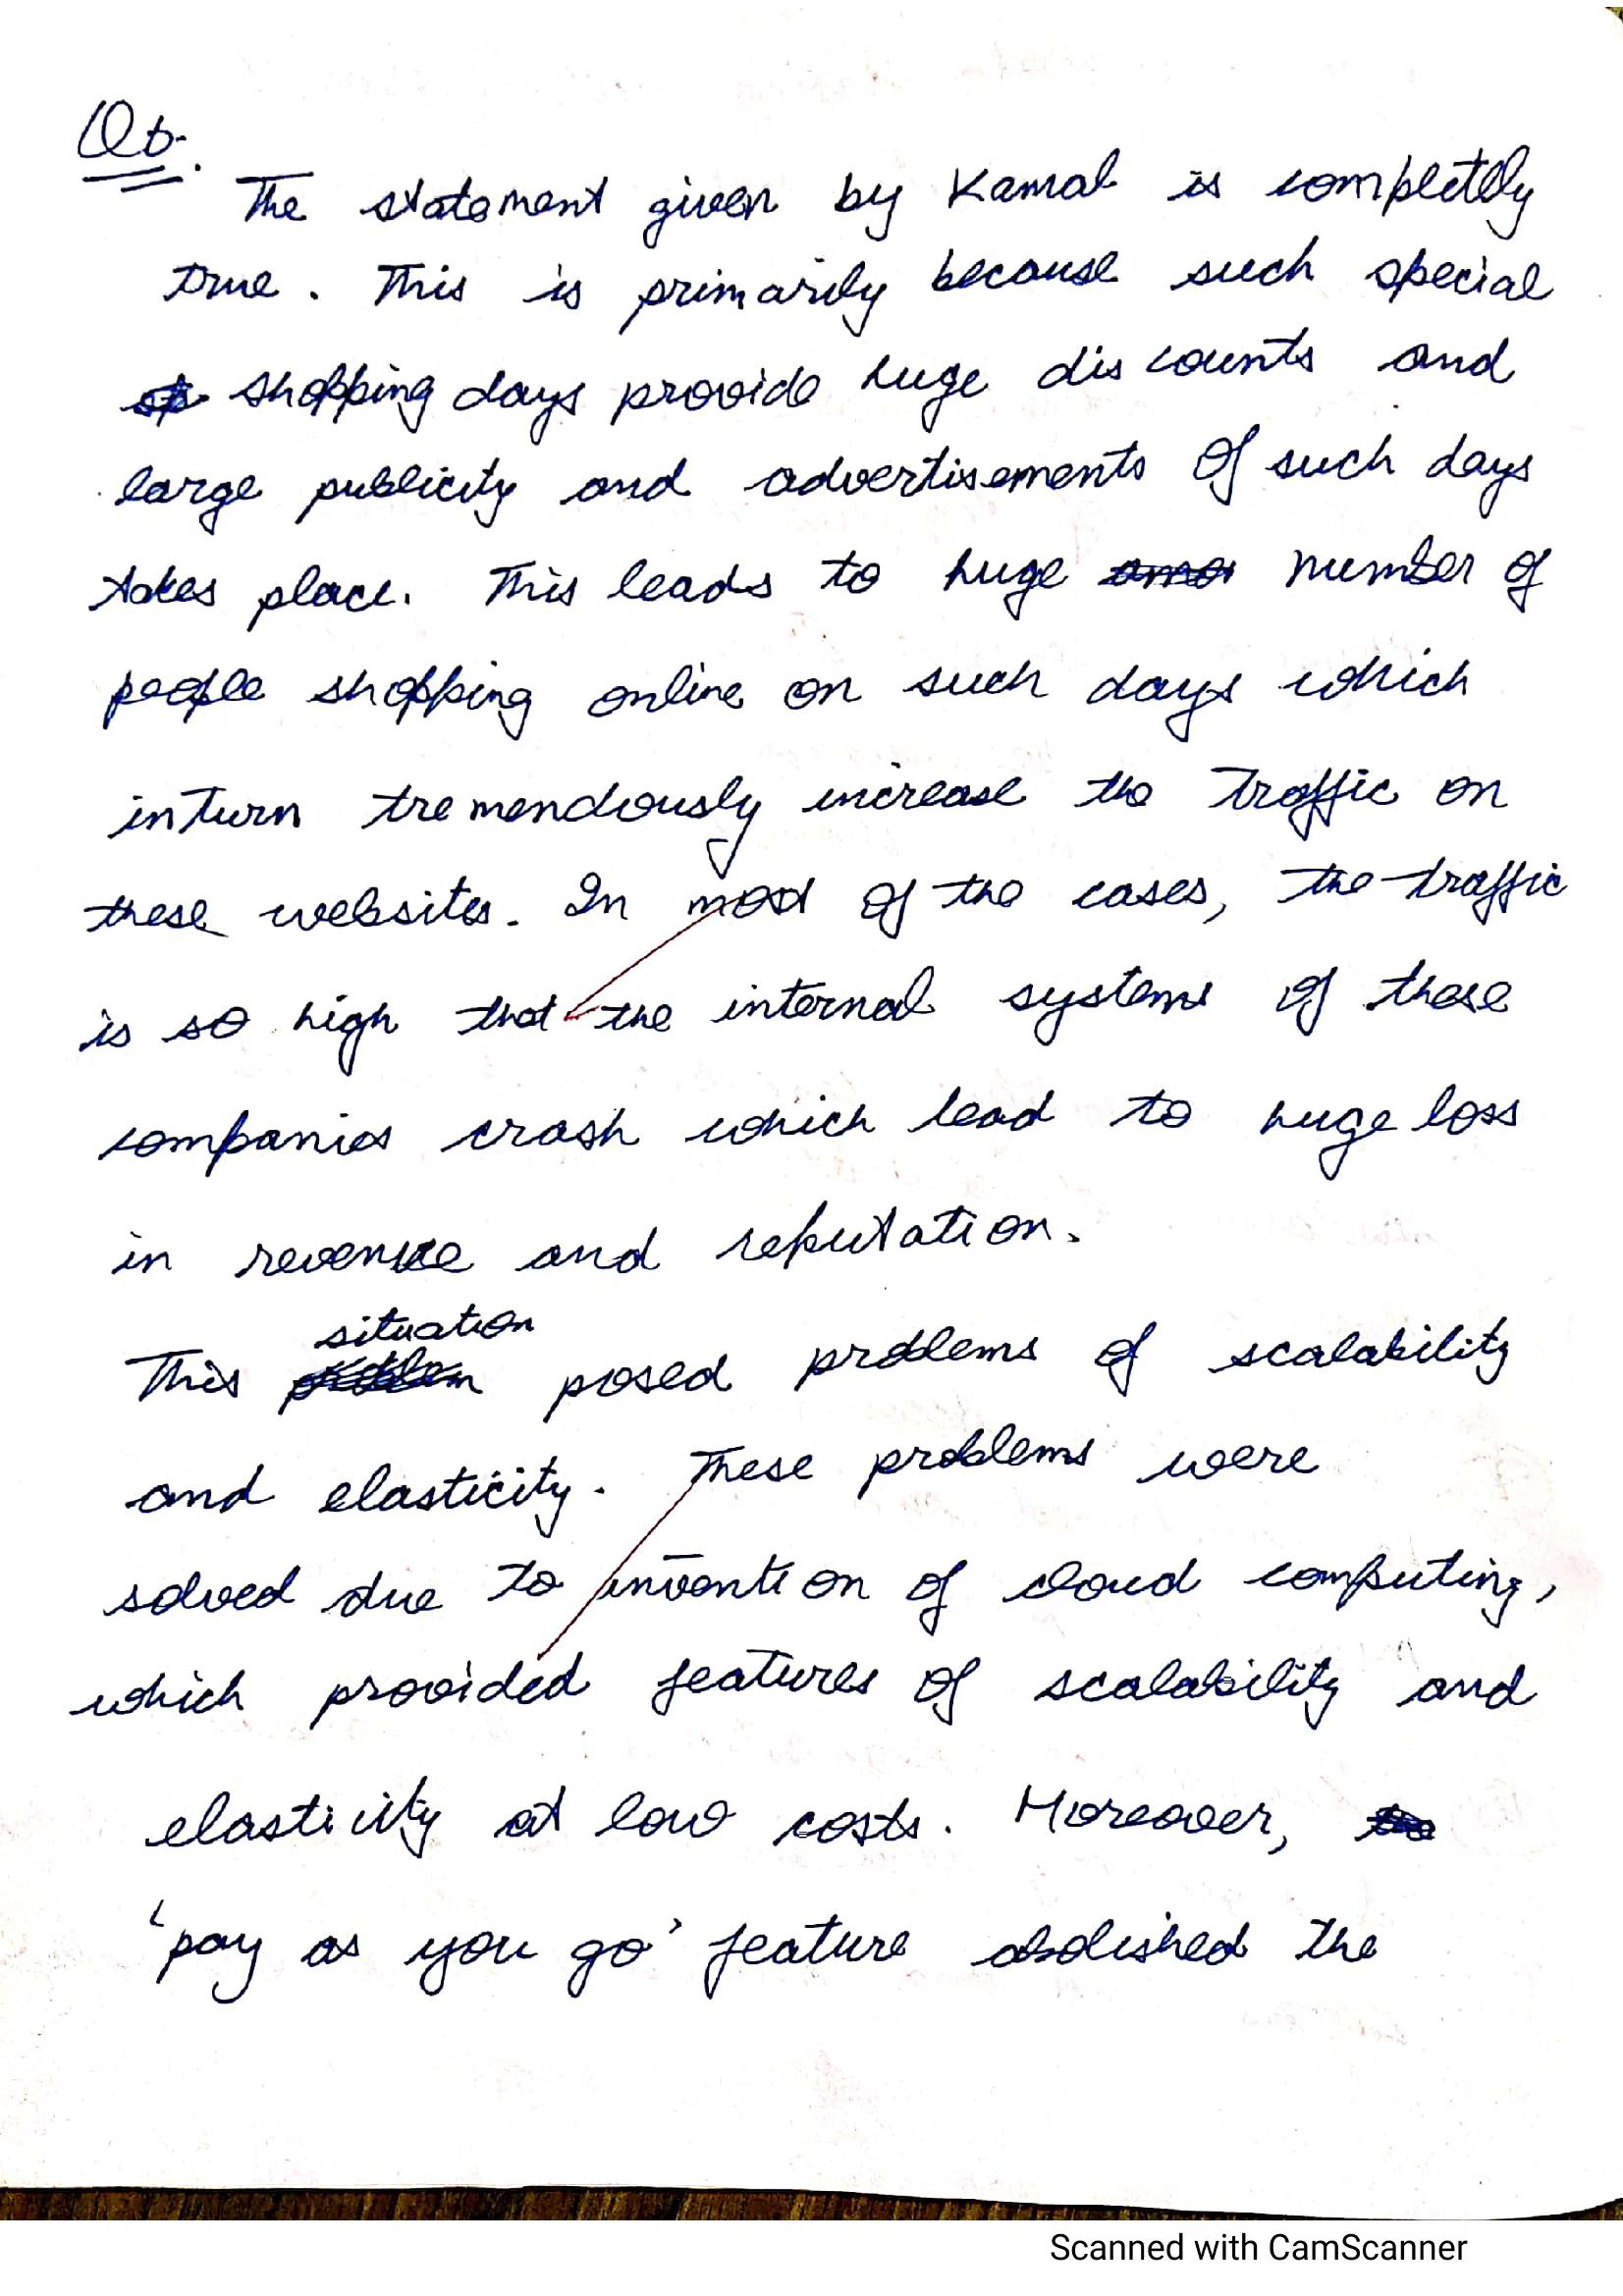 Q6.
The statement given by Kamal is completely
true. This is primarily because such special
shopping days provide huge discounts and
large publicity and advertisements of such days
takes place. This leads to huge number of
people shopping online on such days which
inturn tremendously increase the traffic on
these websites. In most of the cases, the traffic
is so high that the internal systems of these
companies crash which lead to huge loss
in revenue and reputation.
situation
This problem posed problems of scalability
and elasticity. These problems were
solved due to invention of cloud computing,
which provided features of scalability and
elasticity at low costs. Moreover,
'pay as you go' feature abolished the
Scanned with CamScanner